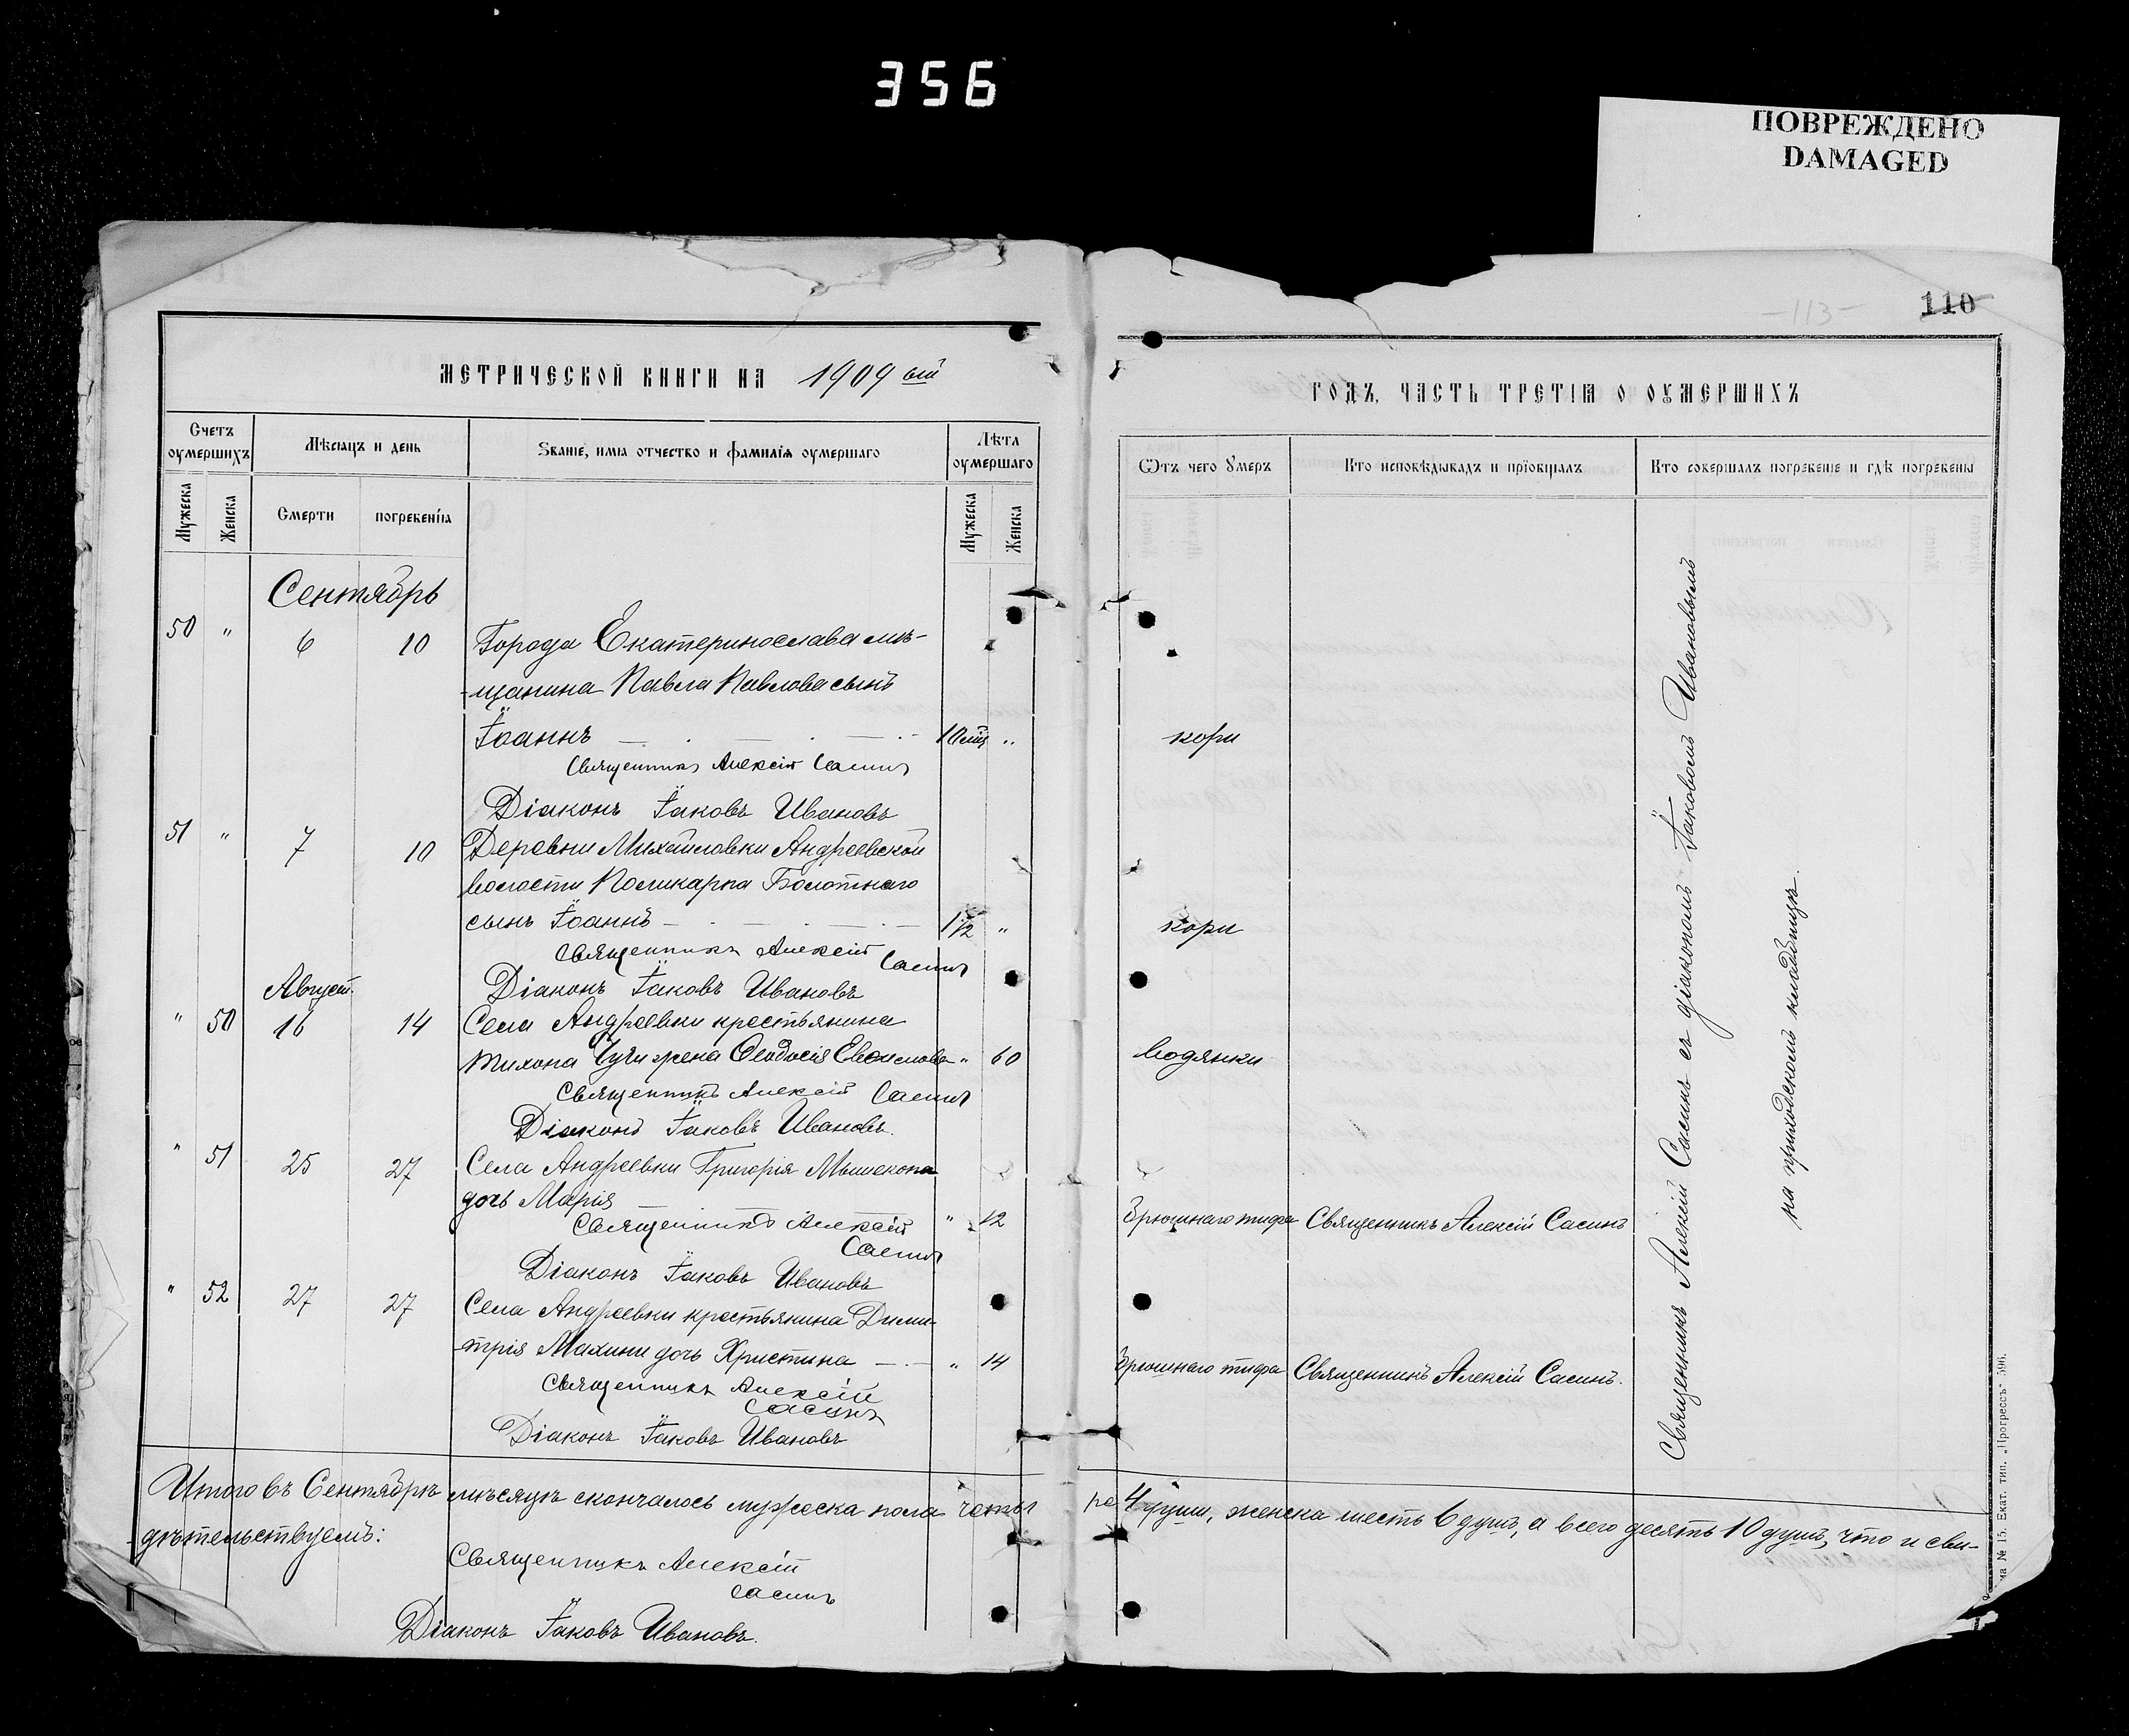 356
ПОВРЕЖДЕНО
DAMAGED
110
-113-
МЕТРИЧЕСКОЙ КНИГИ НА 1909 ый
ГОДЪ, ЧАСТЬ ТРЕТІЯ О ОУМЕРШИХЪ
Счетъ оумершихъ
Мѣсяцъ и день
Званіе, имя отчество и фамилія оумершаго
Лѣта оумершаго
Мужеска
Женска
Смерти
погребенія
Мужеска
Женска
Ѿтъ чего Умеръ
Кто исповѣдывалъ и пріобщалъ
Кто совершалъ погребеніе и гдѣ погребены
Сентябрь
50 " 6 10 Города Екатеринослава мѣ-
щанина Павла Павлова сынъ
Іоаннъ 10 мѣс " кори
Священникъ Алексій Сасинъ
Діаконъ Іаковъ Ивановъ
51 " 7 10 Деревни Михайловки Андреевской
волости Поликарпа Болотнаго
сынъ Іоаннъ 1 1/2 " кори
Священникъ Алексій Сасинъ
Діаконъ Іаковъ Ивановъ
Август.
" 50 16 14 Села Андреевки крестьянина
Тихона жена Ѳеодосія " 60 водянки
Священникъ Алексій Сасинъ
Діаконъ Іаковъ Ивановъ.
" 51 25 27 Села Андреевки Григорія
дочь Марія " 12 Брюшнаго тифа Священникъ Алексій Сасинъ
Священникъ Алексій
Сасинъ
Діаконъ Іаковъ Ивановъ
" 52 27 27 Села Андреевки крестьянина Дими-
трія Махини дочь Христина " 14 Брюшнаго тифа Священникъ Алексій Сасинъ.
Священникъ Алексій
Сасинъ
Діаконъ Іаковъ Ивановъ
Священникъ Алексій Сасинъ съ діакономъ Іаковомъ Ивановымъ
на приходскомъ кладбищѣ.
Итого въ Сентябрѣ мѣсяцѣ скончалось мужеска пола четы ре 4 души, женска шесть 6 душъ, а всего десять 10 душъ, что и сви-
дѣтельствуемъ:
Священникъ Алексій
Сасинъ
Діаконъ Іаковъ Ивановъ.
ма № 15. Екат. тип. „Прогрессъ" 596.